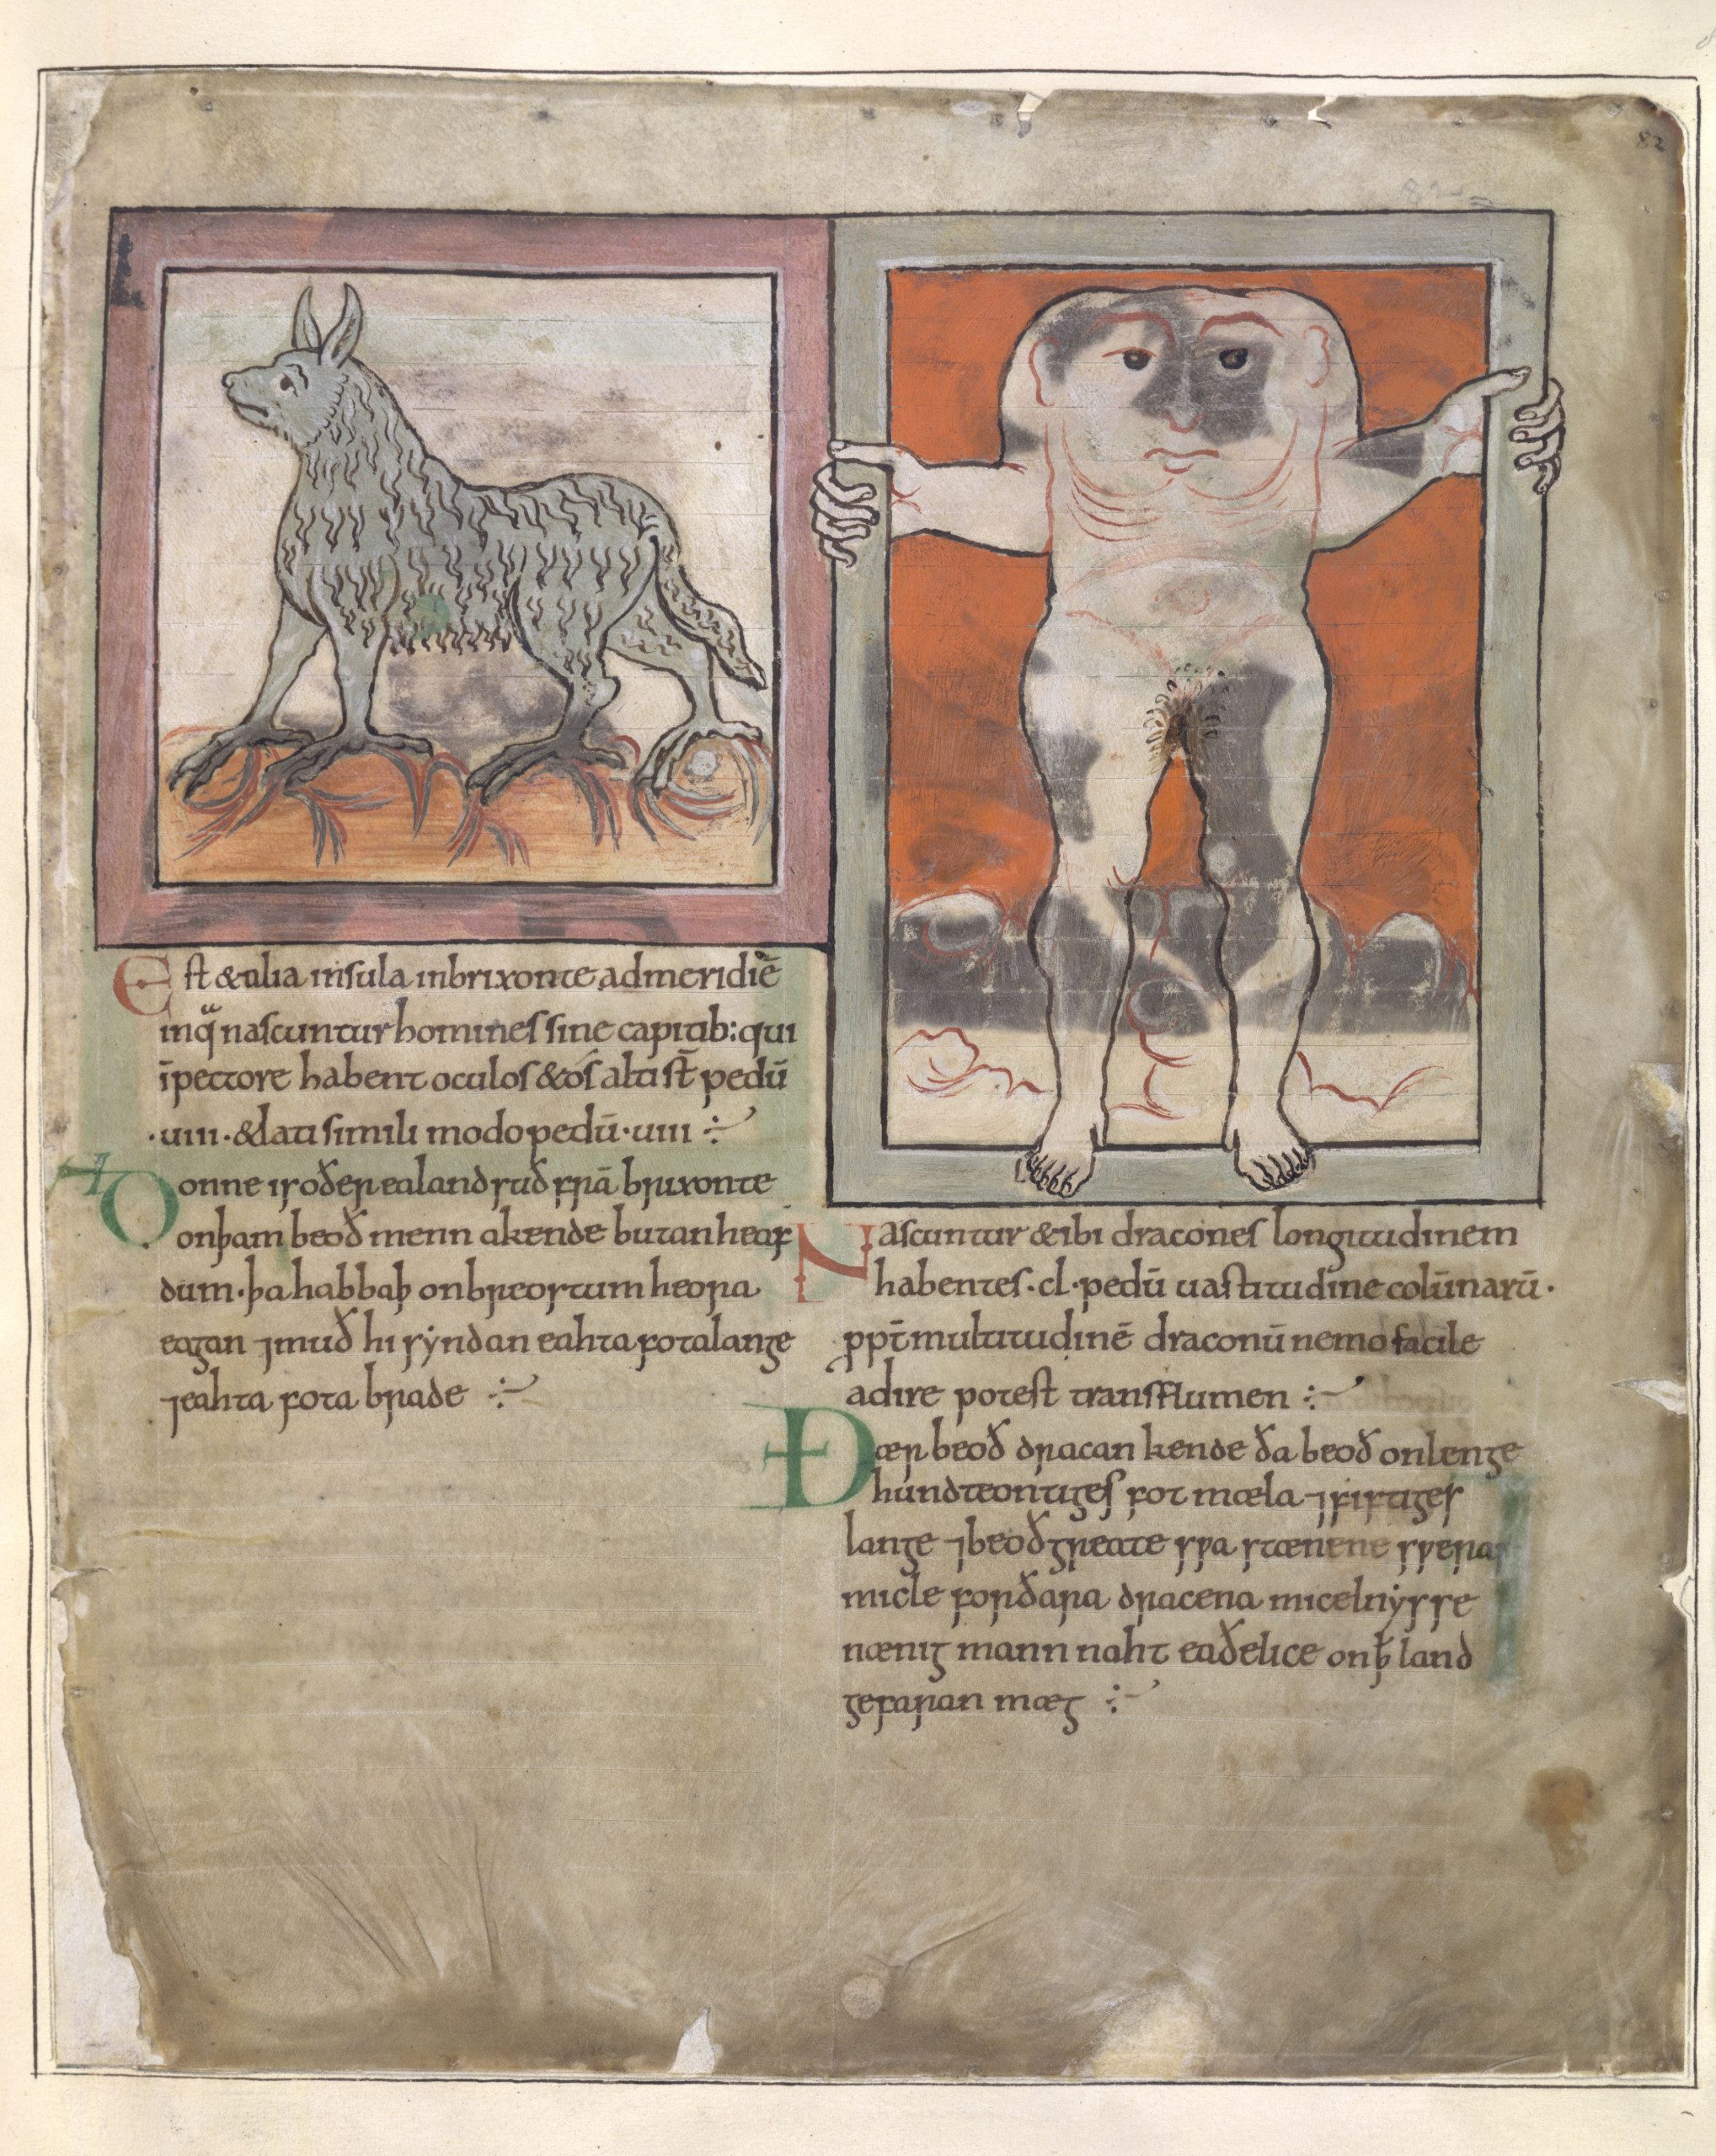 82
Est & alia insula inbrixonte admeridiē
inq̄ nascuntur homines sine capitib: qui
īpectore habent oculos & ós alti st̄ pedū
·uiii· & lati simili modo pedū ·uiii ·:~
Ðonne is oðer ealand suð frā brixonte
onþam beoð menn akende butan heaf
dum · þa habbaþ onbreostum heora
eagan ⁊muð hi sẏndan eahta fota lange
⁊eahta fota brade ·:~
Nascuntur & ibi dracones longitudinem
habentes · cl · pedū uastitudine colūnarū ·
ppt̄ multitudinē draconū nemo facile
adire potest transflumen ·:~
Ðær beoð dracan kende ða beoð onlenge
hundteontiges fot mæla ⁊fiftiges
lange ⁊beoð greate swa stænene sweras
micle forðara dracena micelnẏsse
nænig mann naht eaðelice onꝥ land
gefaran mæg ·:~